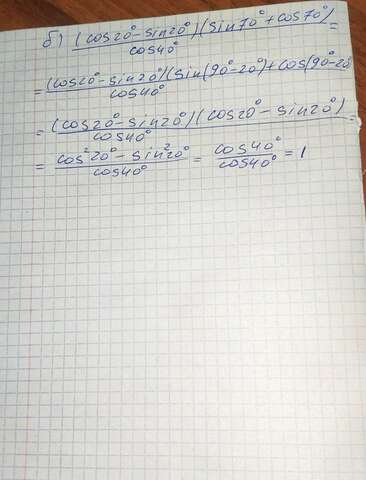 б) (cos20° - sin20°)(sin70° + cos70°) / cos40° =
= (cos20° - sin20°)(sin(90°-20°) + cos(90°-20 / cos40°
= (cos20° - sin20°)(cos20° - sin20°) / cos40° =
= cos²20° - sin²20° / cos40° = cos40° / cos40° = 1